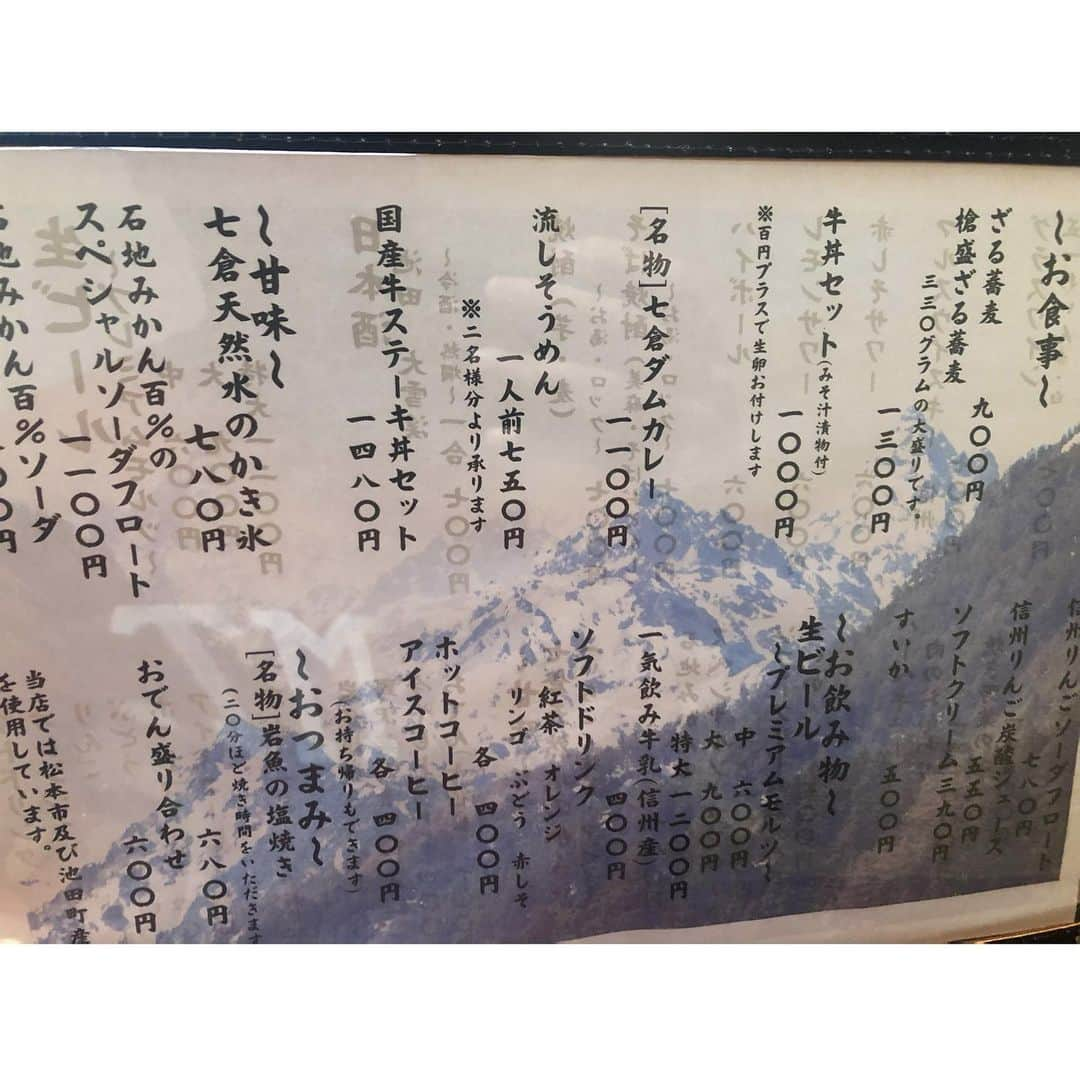 ～お食事～
ざる蕎麦 九〇〇円
槍盛ざる蕎麦 一三〇〇円
三三〇グラムの大盛りです。
牛丼セット(みそ汁漬物付) 一〇〇〇円
※百円プラスで生卵お付けします
[名物]七倉ダムカレー 一一〇〇円
流しそうめん 一人前七五〇円
※二名様分より承ります
国産牛ステーキ丼セット 一四八〇円
～甘味～
七倉天然水のかき氷 七八〇円
石地みかん百%の
スペシャルソーダフロート 一一〇〇円
石地みかん百%ソーダ
信州りんごソーダフロート 七八〇円
信州りんご炭酸ジュース 五五〇円
ソフトクリーム 三九〇円
すいか 五〇〇円
～お飲み物～
生ビール
～プレミアムモルツ～
中 六〇〇円
大 九〇〇円
特大 一二〇〇円
一気飲み牛乳(信州産) 四〇〇円
ソフトドリンク
紅茶 オレンジ
リンゴ ぶどう 赤しそ
各 四〇〇円
ホットコーヒー
アイスコーヒー
各 四〇〇円
(お持ち帰りもできます)
～おつまみ～
[名物]岩魚の塩焼き
(二〇分ほど焼き時間をいただきます
六八〇円
おでん盛り合わせ 六〇〇円
当店では松本市及び池田町産
を使用しています。